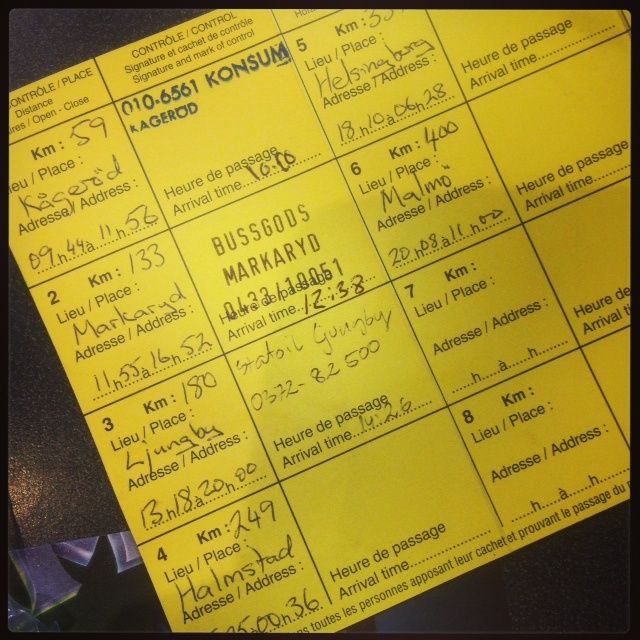 CONTRÔLE / PLACE
Distance
Open - Close
CONTRÔLE / CONTROL
Signature et cachet de contrôle
Signature and mark of control
Km : 59
Lieu / Place :
Kågeröd
Adresse / Address :
09h 44 à 11h 56
010-6561 KONSUM
KÅGERÖD
Heure de passage
Arrival time 10.00
2
Km : 133
Lieu / Place :
Markaryd
Adresse / Address :
11h 55 à 16h 52
BUSSGODS
MARKARYD
0433/10051
Heure de passage
Arrival time 12:38
3
Km : 180
Lieu / Place :
Ljungby
Adresse / Address :
13h 18 à 20h 00
Statoil Ljungby
0372-82500
Heure de passage
Arrival time 14:26
4
Km : 249
Lieu / Place :
Halmstad
Adresse / Address :
00h 36
Heure de passage
Arrival time
5
Km :
Lieu / Place :
Helsingborg
Adresse / Address :
18h 10 à 06h 28
Heure de passage
Arrival time
6
Km : 400
Lieu / Place :
Malmö
Adresse / Address :
20h 08 à 11h 00
Heure de passage
Arrival time
7
Km :
Lieu / Place :
Adresse / Address :
h à h
Heure de
Arrival
8
Km :
Lieu / Place :
Adresse / Address :
h à h
toutes les personnes apposant leur cachet et prouvant le passage du